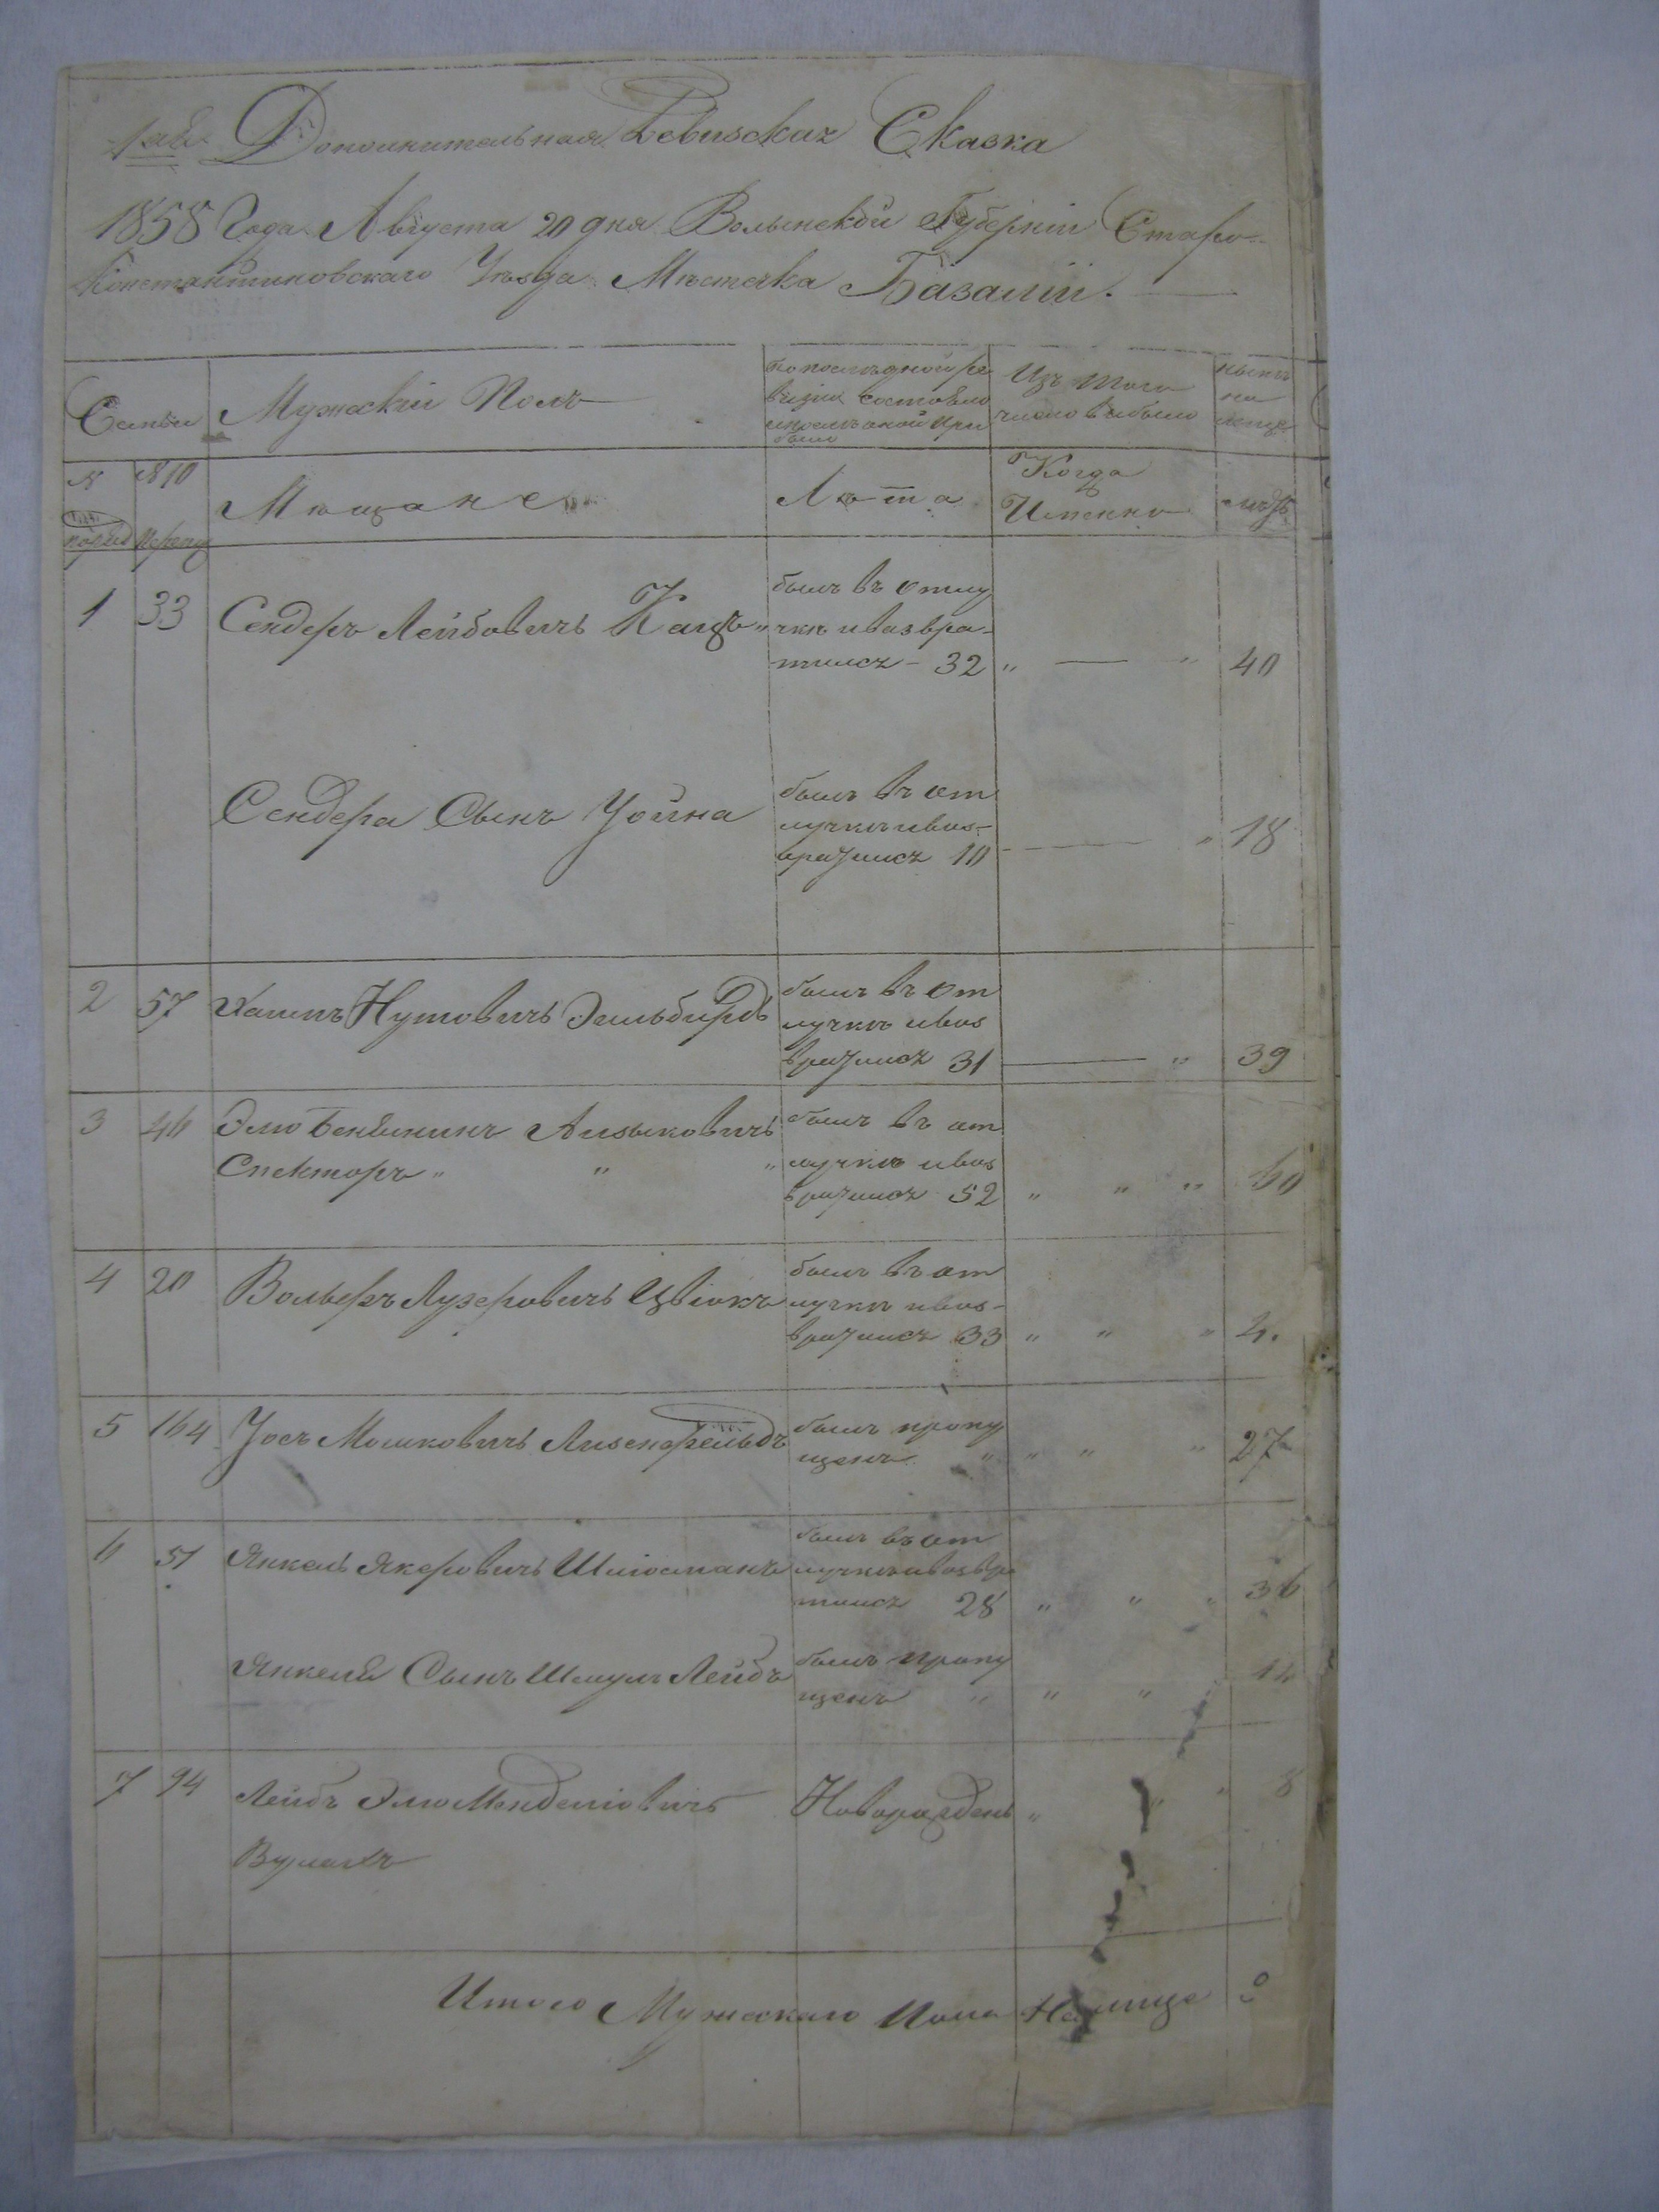 Дополнительная Ревизская Сказка
1858 Года Августа 20 дня Волынской Губерніи Старо-
Константиновскаго Уѣзда Мѣстечка Базаліи.
Семьи
Мужскій Полъ
по послѣдной ре
визіи состояло
и послѣ оной при
было
Изъ того
числа выбыло
нынѣ
на
лице
№ №
Мѣщане
Лѣта
Когда
Именно
лѣтъ
1 33 Сендеръ Лейбовичъ Кацъ
былъ въ отлу
чкѣ и возвра-
тился - 32 " — " 40
Сендера Сынъ Уойна
былъ въ от
лучкѣ и воз-
вратился 10 — " 18
2 57 Хаимъ Нутовичъ Эльбирдъ
былъ въ от
лучкѣ и воз
вратился 31 — " 39
3 46 Элю Беньюминъ Аизыковичъ
Спекторъ " " "
былъ въ от
лучкѣ и воз
вратился 52 " " " 60
4 20 Вольфъ Лузеровичъ Цвіокъ
былъ въ от
лучкѣ и воз-
вратился 33 " " "
5 164 Іосъ Мошковичъ Аизенфельдъ
былъ пропу
щенъ " " " " 27
6 51 Янкель Якеровичъ Шлюсманъ
былъ въ от
лучкѣ и возвра
тился 28 " " " 36
Янкеля Сынъ Шмулъ Лейбъ
былъ пропу
щенъ " " " 14
7 94 Лейбъ Элю Менделіовичъ
Новорожденъ " " " 8
Итого Мужскаго Пола На лице